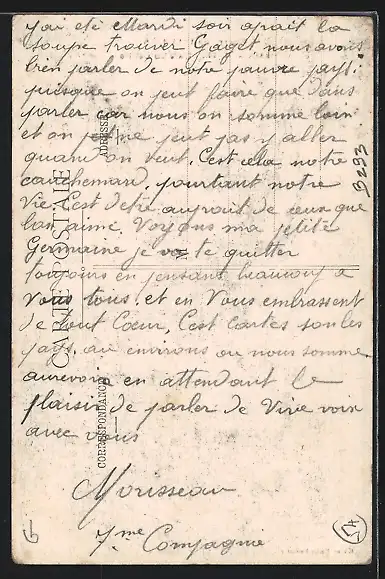 j'ai eté Mardi soir aprait la
soupe trouver Gaget nous avons
bien parler de notre pauvre pays.
puisque on peut faire que dans
parler car nous on somme loin
et on ne peut pas y aller
quand on veut. C'est cela notre
cauchemard. pourtant notre
Vie c'est d'etre auprait de ceux que
lon aime. Voyons ma petite
Germaine je te quitter
toujours en pensant beaucoup a
Vous tous. et en Vous embrassent
de tout Cœur, C'est cartes son les
pays. au environs ou nous somme
aurevoir en attendant le
plaisir de parler de Vive voix
avec vous
Morisseau
7me Compagnie
CARTE POSTALE
CORRESPONDANCE
ADRESSE
B293
6